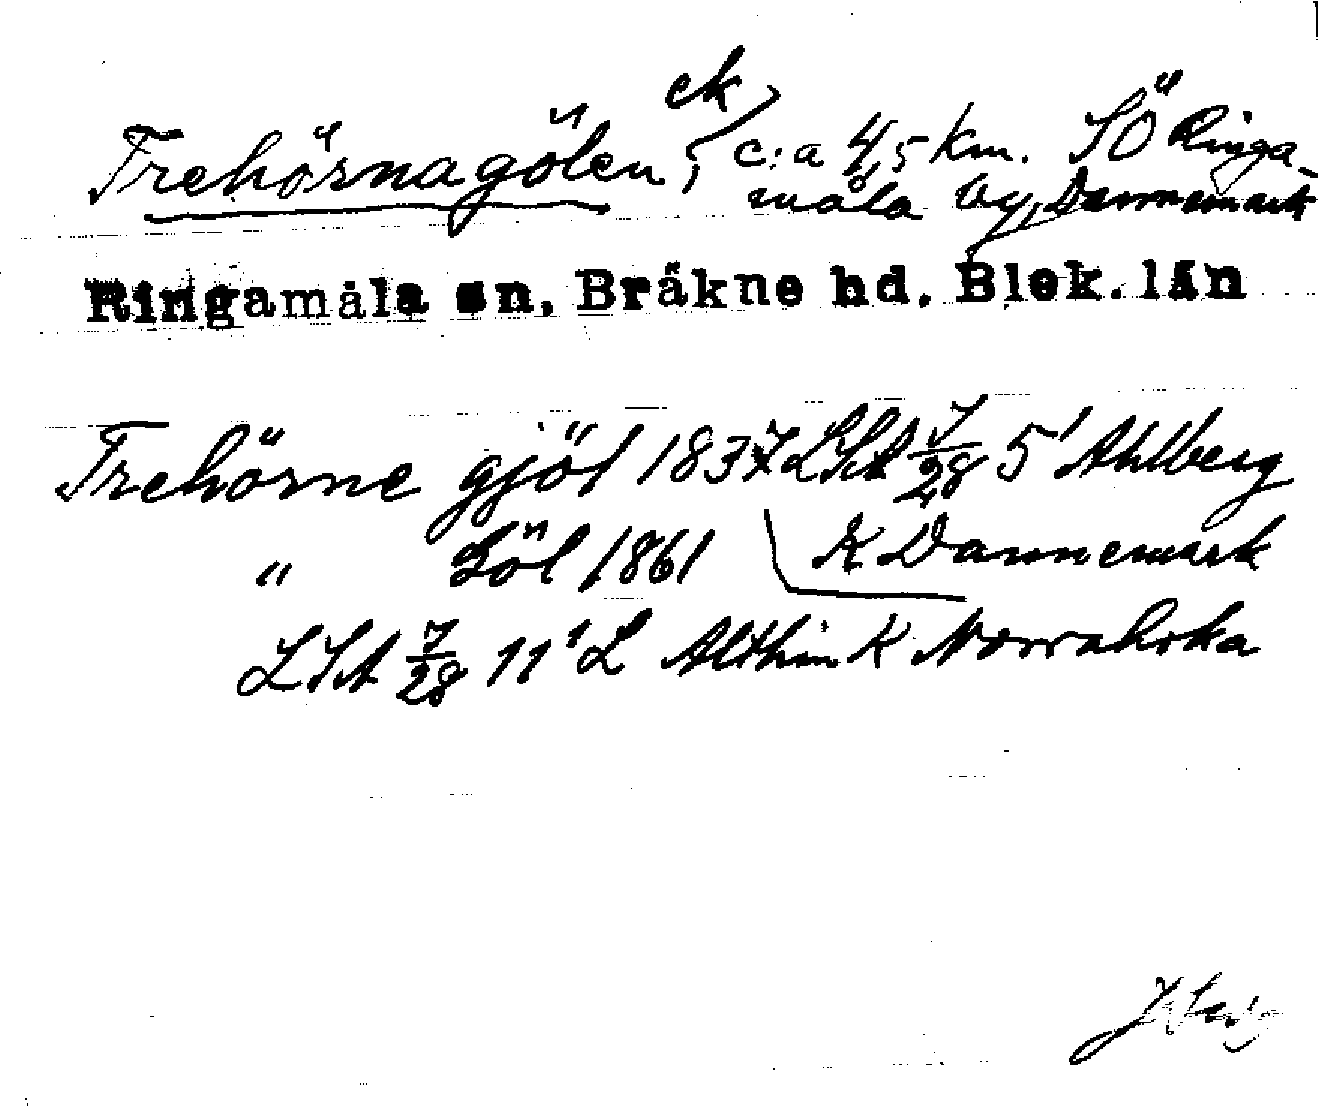 ek
Trehörnagölen, c:a 4,5 km. SÖ Ringa-
måla by, Dannemark
Ringamåla sn, Bräkne hd. Blek. län
Trehörne gjöl 1837 LSA 7/28 5' Ahlberg
" Göl 1861 K Dannemark
LSA 7/28 11' L Althin K Norrahoka